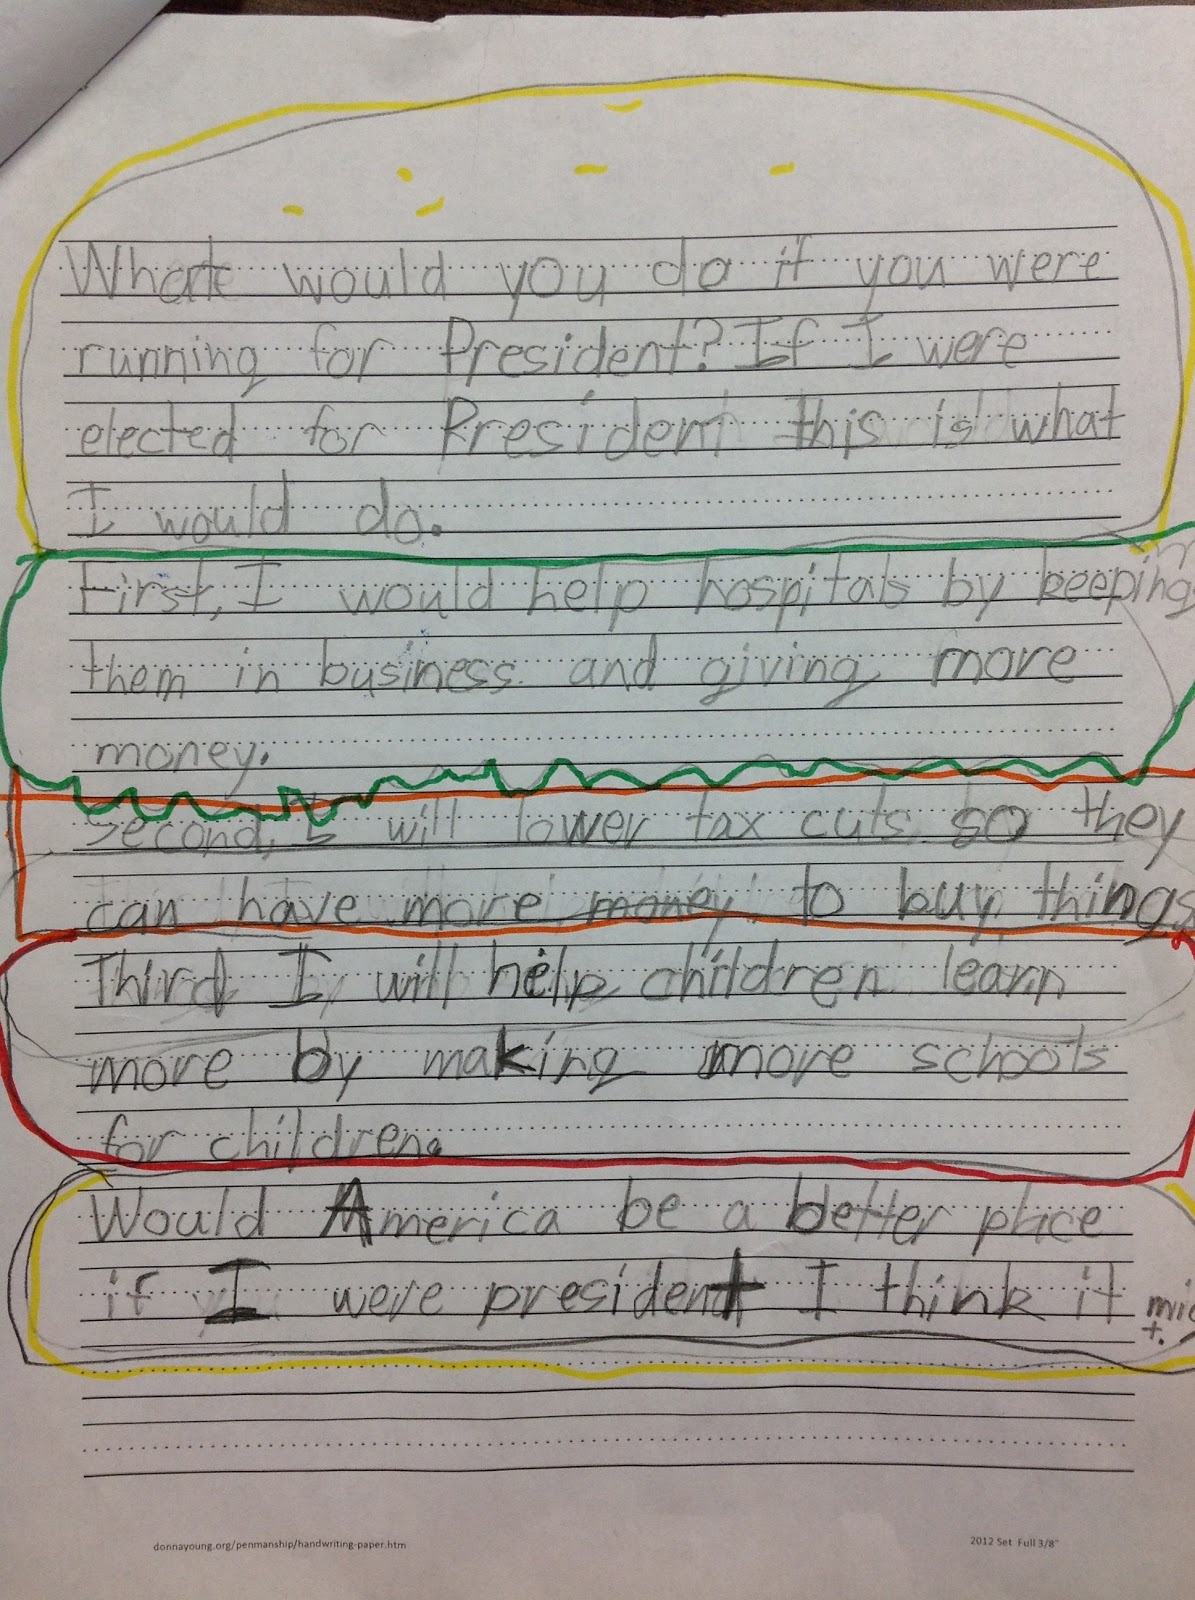 What would you do if you were
running for President? If I were
elected for President this is what
I would do.
First, I would help hospitals by keeping
them in business and giving more
money.
Second, I will lower tax cuts so they
can have more money to buy things
Third I will help children learn
more by making more schools
for children.
Would America be a better place
if I were president I think it
donnayoung.org/penmanship/handwriting-paper.htm
2012 Set Full 3/8"